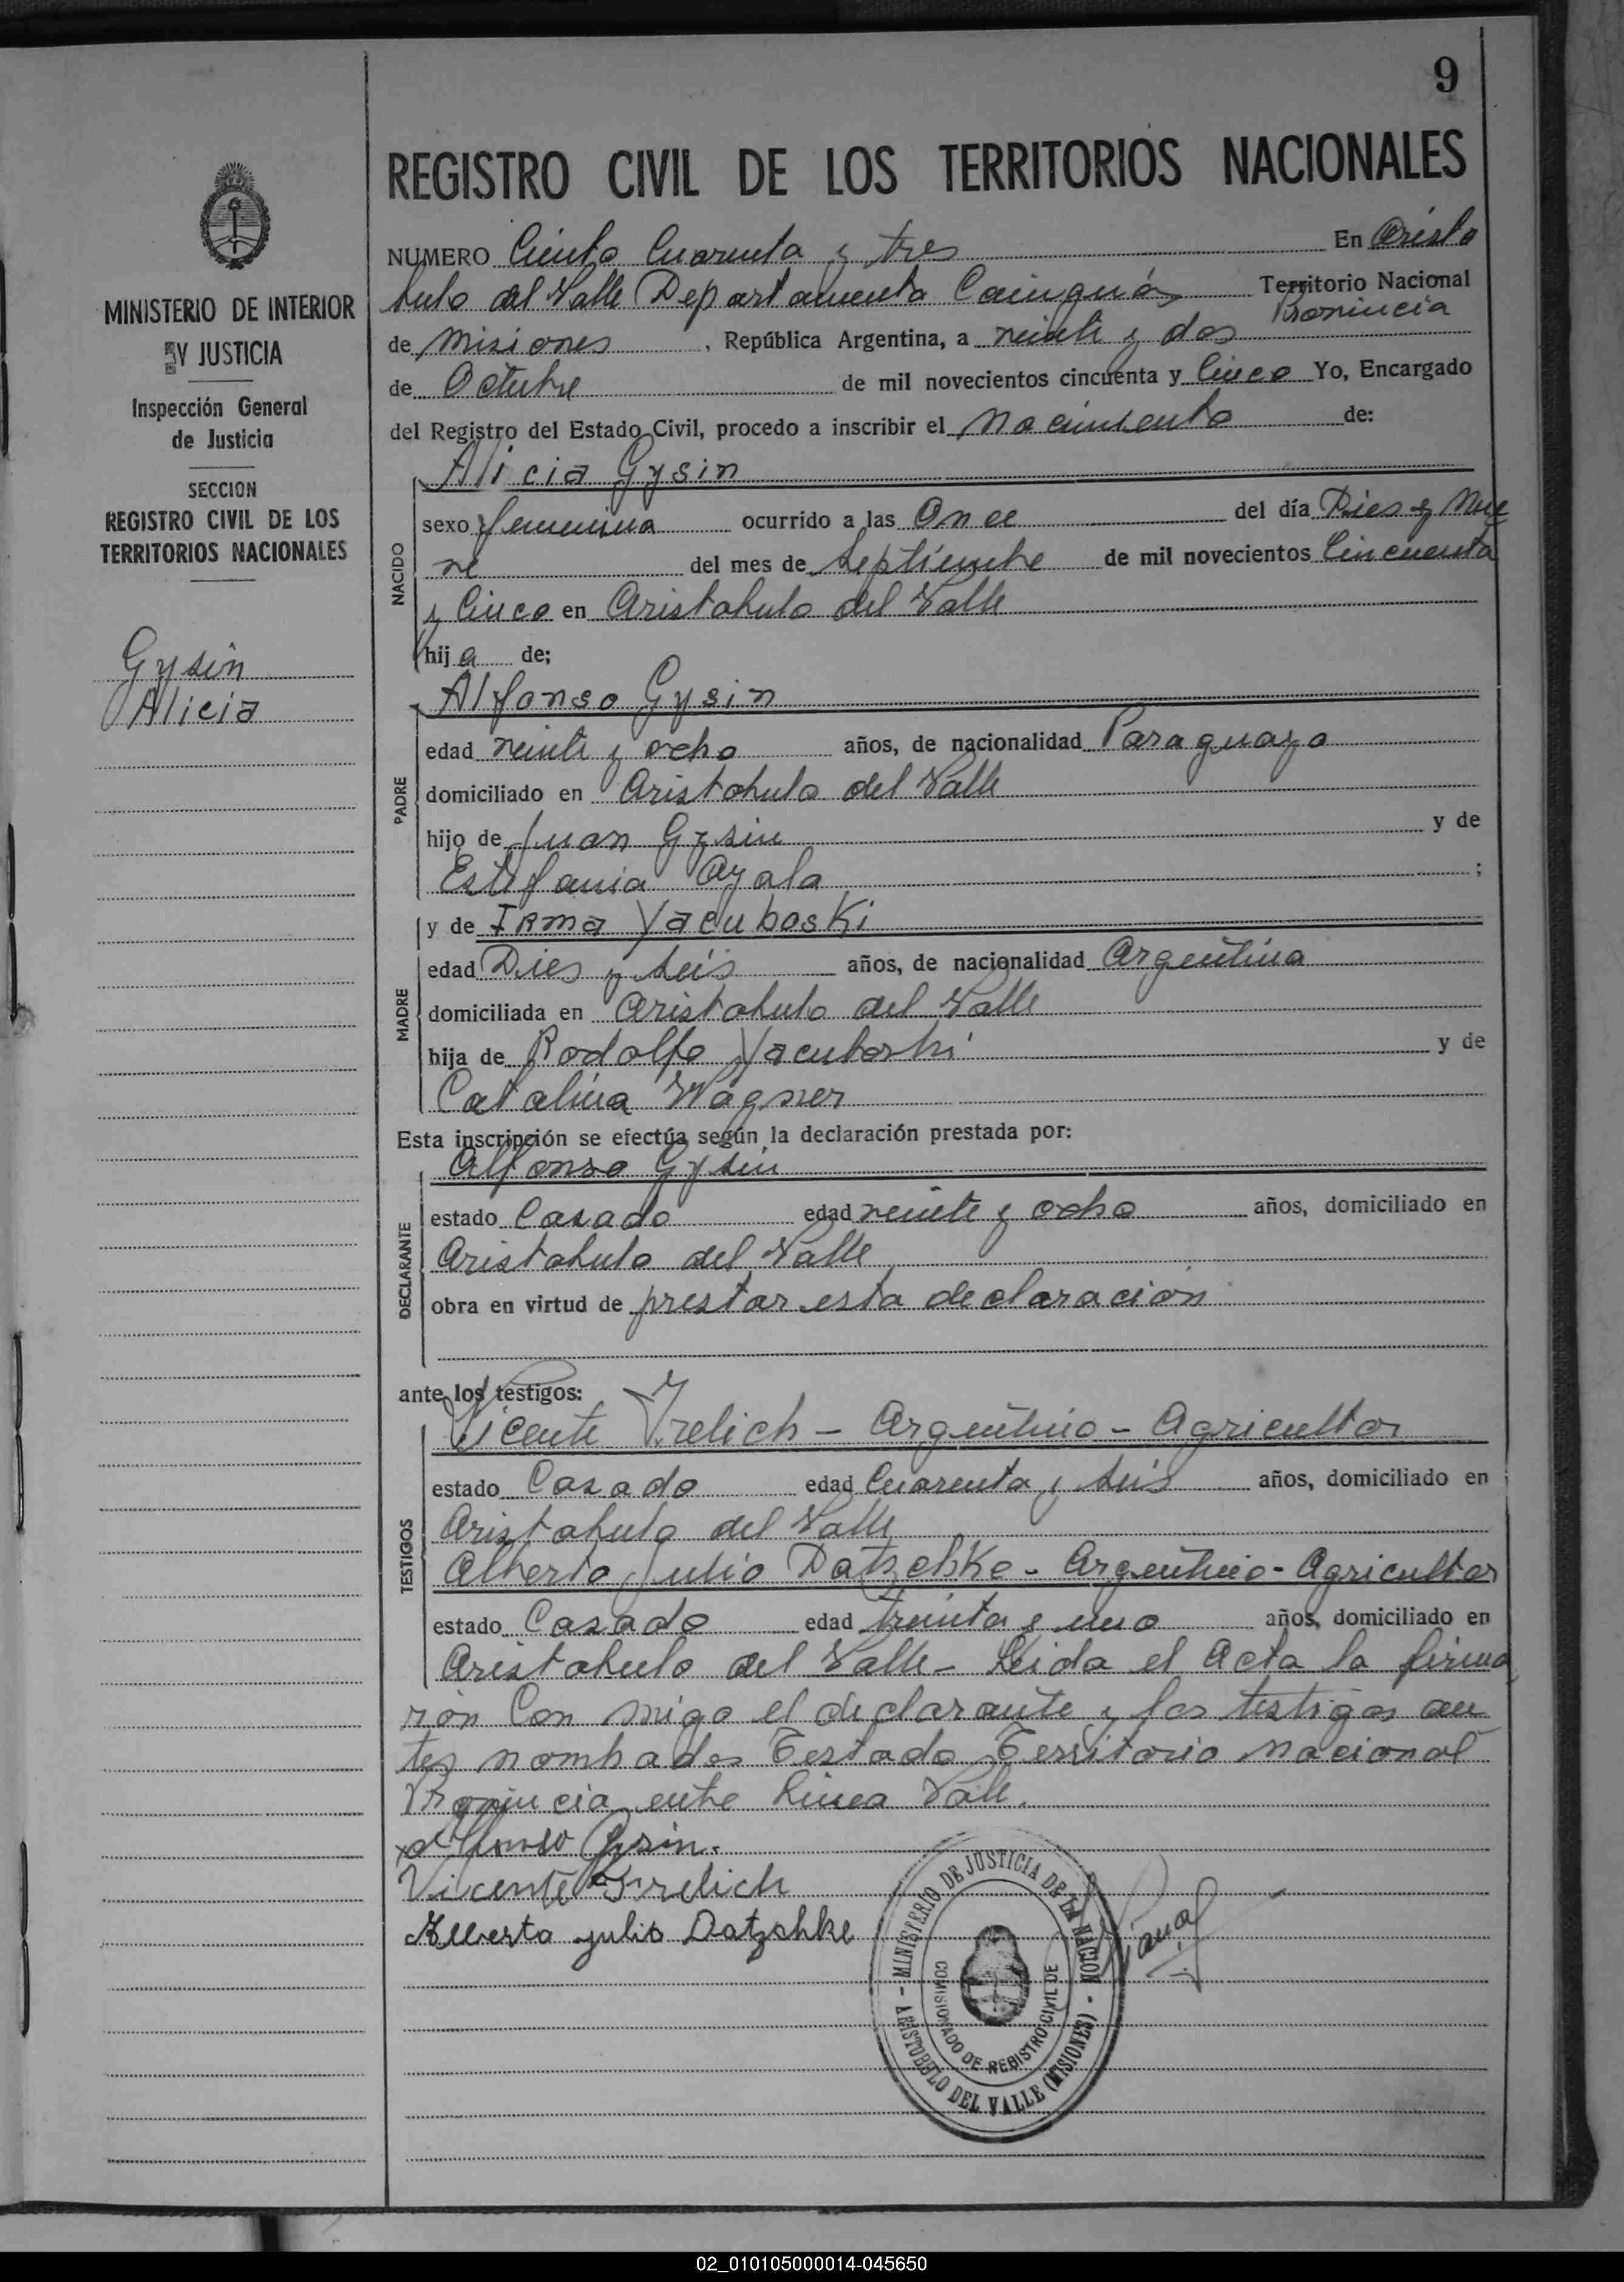 9
REGISTRO CIVIL DE LOS TERRITORIOS NACIONALES
MINISTERIO DE INTERIOR
Y JUSTICIA
Inspección General
de Justicia
SECCION
REGISTRO CIVIL DE LOS
TERRITORIOS NACIONALES
Gysin
Alicia
NUMERO Ciento Cuarenta y tres En Aristo
bulo del Valle Departamento Cainguás Territorio Nacional
Provincia
de Misiones, República Argentina, a veinte y dos
de Octubre de mil novecientos cincuenta y Cinco Yo, Encargado
del Registro del Estado Civil, procedo a inscribir el Nacimiento de:
Alicia Gysin
NACIDO
sexo femenina ocurrido a las Once del día Dies y Nue
ve del mes de Septiembre de mil novecientos Cincuenta
y Cinco en Aristobulo del Valle
hija de;
Alfonso Gysin
PADRE
edad veinte y ocho años, de nacionalidad Paraguayo
domiciliado en Aristobulo del Valle
hijo de Juan Gysin y de
Estefania Ayala ;
y de Irma Yacuboski
MADRE
edad Dies y seis años, de nacionalidad Argentina
domiciliada en Aristobulo del Valle
hija de Rodolfo Yacuboski y de
Catalina Wagner
Esta inscripción se efectúa según la declaración prestada por:
Alfonso Gysin
DECLARANTE
estado Casado edad veinte y ocho años, domiciliado en
Aristobulo del Valle
obra en virtud de prestar esta declaracion
ante los testigos:
Vicente Frelich - Argentino - Agricultor
TESTIGOS
estado Casado edad Cuarenta y seis años, domiciliado en
Aristobulo del Valle
Alberto Julio Datzchke - Argentino - Agricultor
estado Casado edad treinta y uno años, domiciliado en
Aristobulo del Valle - Leida el Acta la firma
rón Con migo el declarante y los testigos an
tes nombados Testado Territorio Nacional
Provincia entre linea Vale.
x Alfonso Gysin.
Vicente Frelich
Alberto Julio Datzchke
- MINISTERIO DE JUSTICIA DE LA NACION -
COMISIONADO DE REGISTRO CIVIL DE
ARISTOBULO DEL VALLE (MISIONES)
02_010105000014-045650